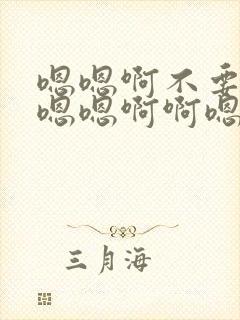 嗯嗯啊不要
嗯嗯啊啊嗯
三月海